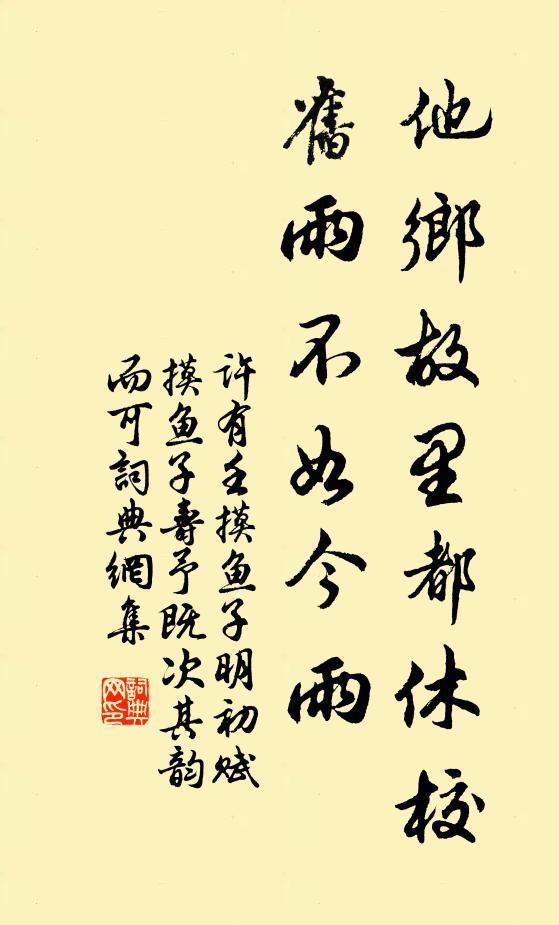 他鄉故里都休校
舊雨不如今雨
许有壬摸鱼子明初赋
摸鱼子壽予既次其韵
而可詞典網集
詞典
网印